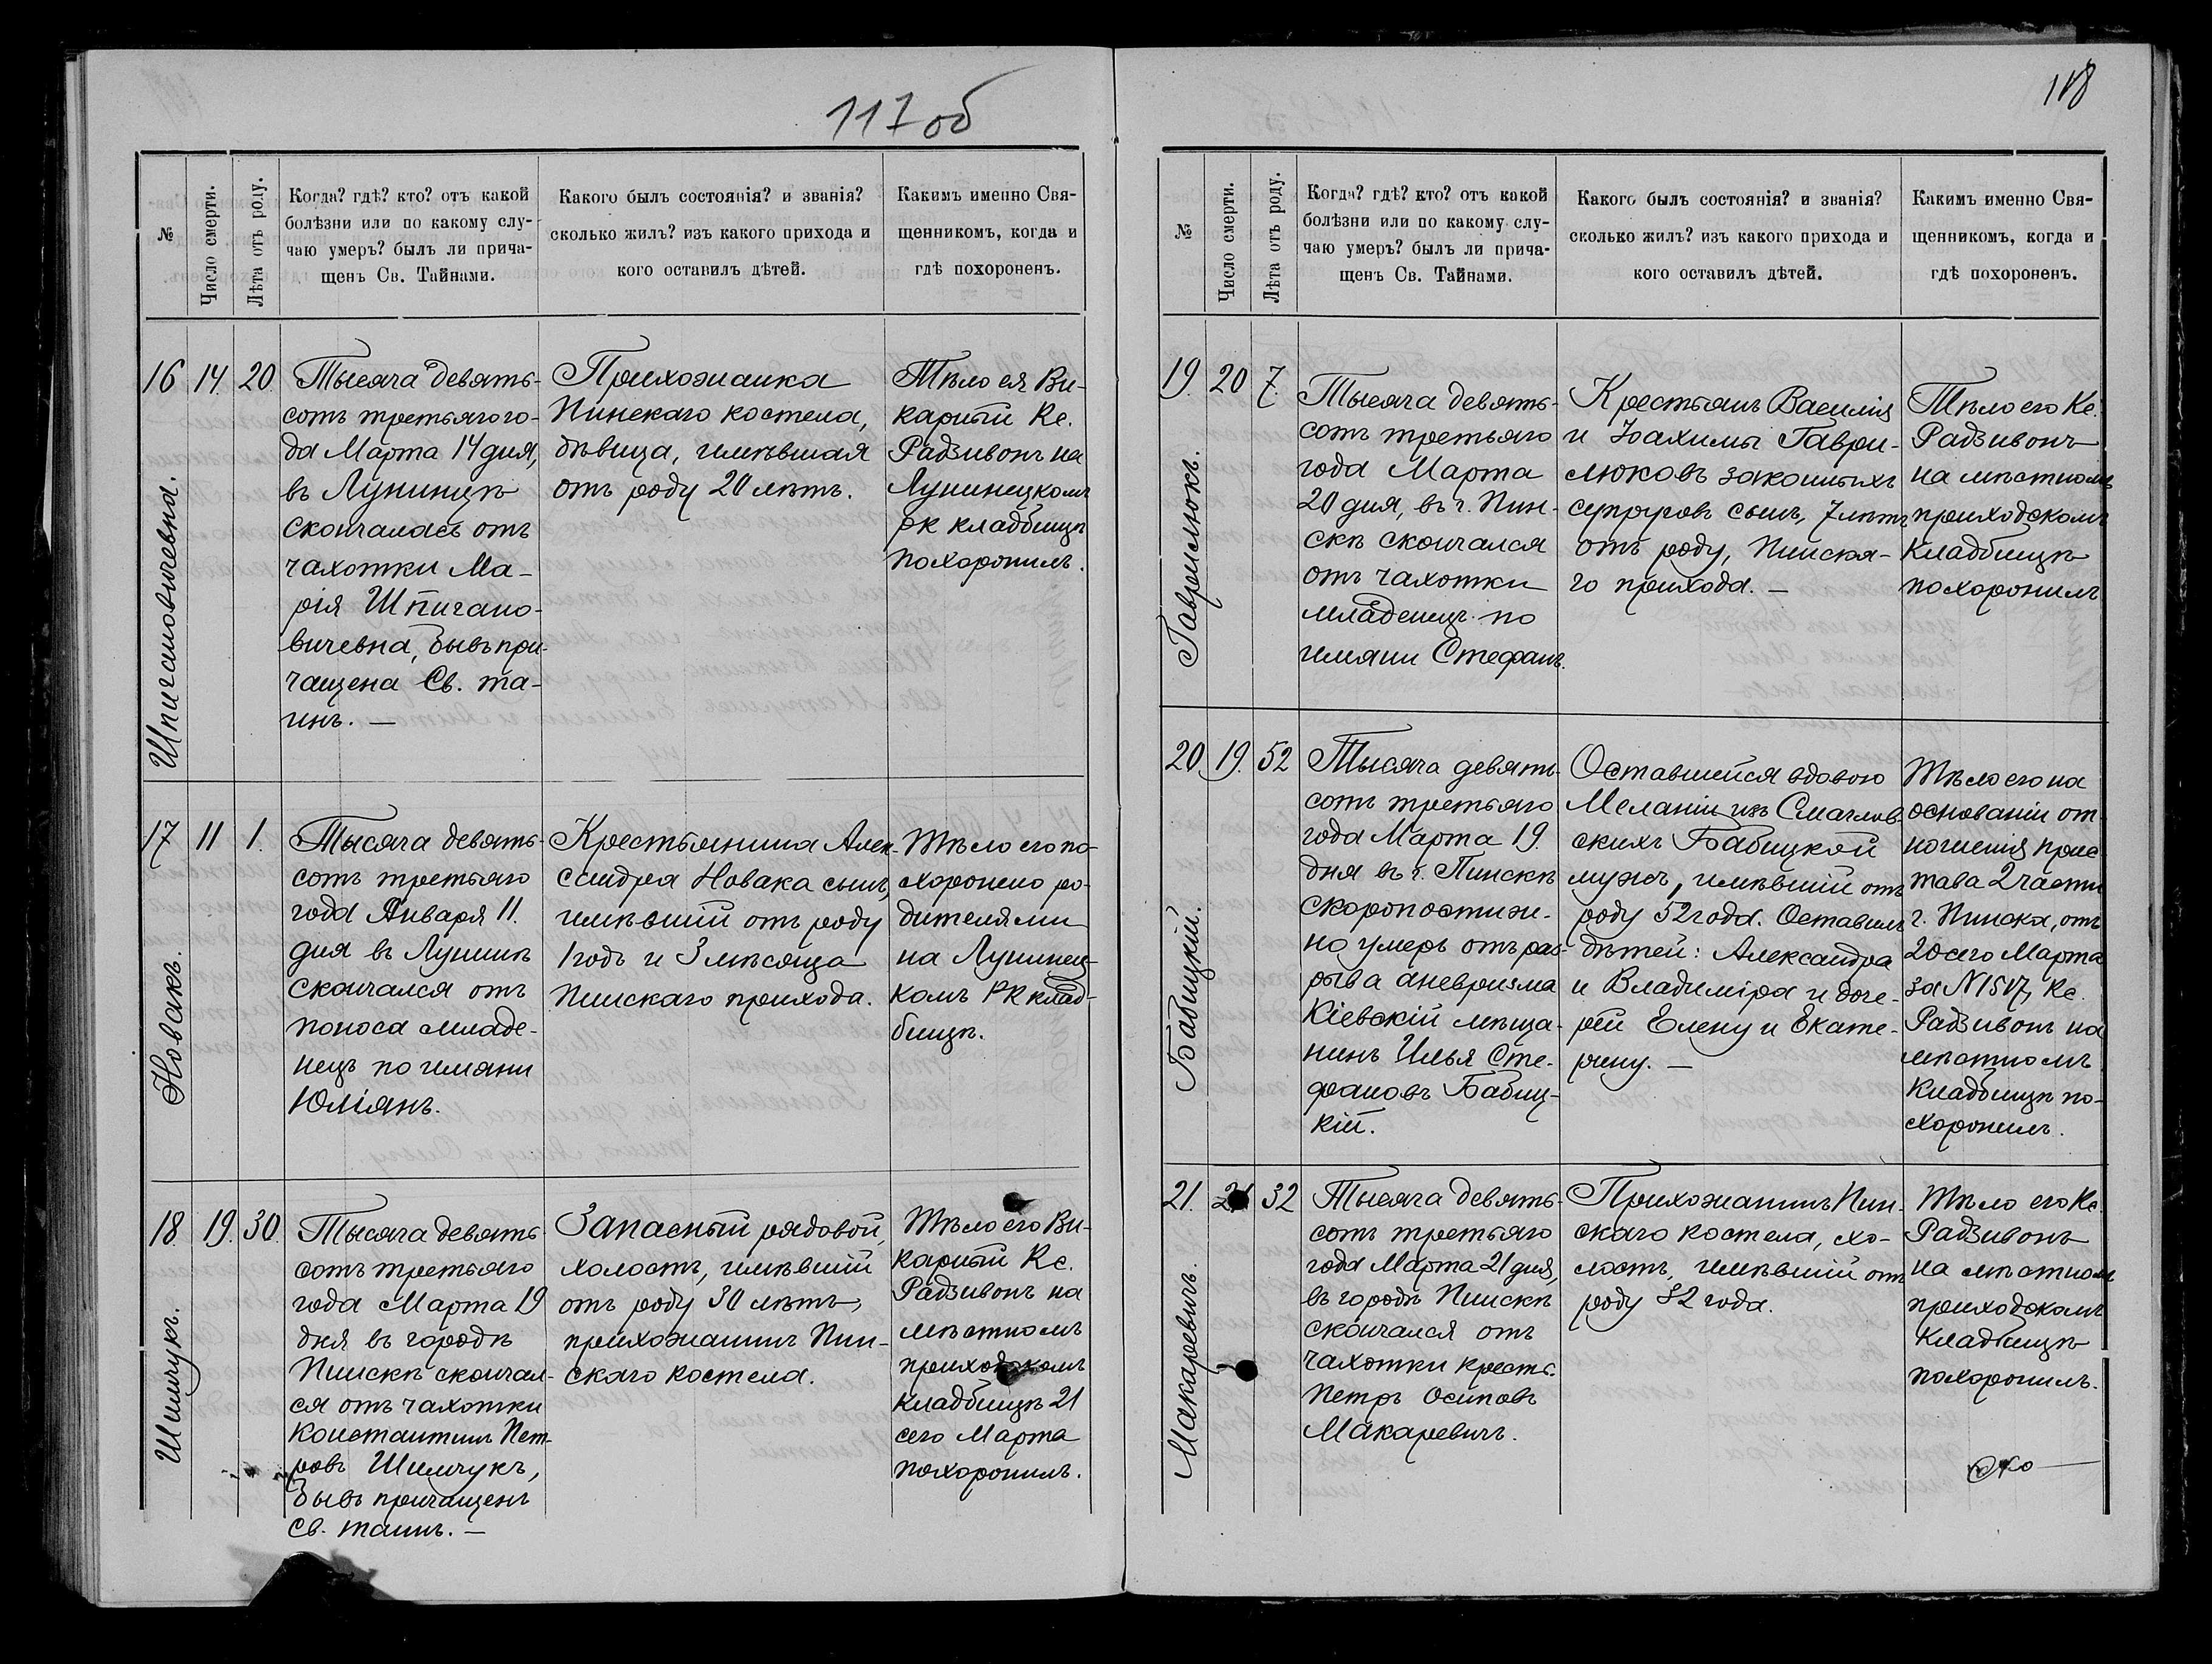 117 об
№
Число смерти.
Лѣта отъ роду.
Когда? гдѣ? кто? отъ какой
болѣзни или по какому слу-
чаю умеръ? былъ ли прича-
щенъ Св. Тайнами.
Какого былъ состоянія? и званія?
сколько жилъ? изъ какого прихода и
кого оставилъ дѣтей.
Какимъ именно Свя-
щенникомъ, когда и
гдѣ похороненъ.
Шпигановичевна.
16 14. 20.
Тысяча девять-
сотъ третьяго го-
да Марта 14 дня,
въ Лунинцѣ
скончалась отъ
чахотки Ма-
рія Шпигано-
вичевна, бывъ при-
чащена Св. та-
инъ. —
Прихожанка
Пинскаго костела,
дѣвица, имѣвшая
отъ роду 20 лѣтъ.
Тѣло ея Ви-
карный Кс.
Радзивонъ на
Лунинецкомъ
рк кладбищѣ
похоронилъ.
Новакъ.
17 11 1.
Тысяча девять-
сотъ третьяго
года Января 11.
дня въ Лунинѣ
скончался отъ
поноса младе-
нецъ по имяни
Юліянъ.
Крестьянина Алек-
сандра Новака сынъ,
имѣвшій отъ роду
1 годъ и 3 мѣсяца
Пинскаго прихода.
Тѣло его по-
хоронено ро-
дителями
на Лунинец-
комъ РК клад-
бищѣ.
Шимчукъ.
18. 19. 30.
Тысяча девять-
сотъ третьяго
года Марта 19
дня въ городѣ
Пинскѣ скончал-
ся отъ чахотки
Константинъ Пет-
ровъ Шимчукъ,
бывъ причащенъ
Св. таинъ. —
Запасный рядовой,
холостъ, имѣвшій
отъ роду 30 лѣтъ,
прихожанинъ Пин-
скаго костела.
Тѣло его Ви-
карный Кс.
Радзивонъ на
мѣстномъ
приходскомъ
кладбищѣ 21
сего Марта
похоронилъ.
118
№
Число смерти.
Лѣта отъ роду.
Когда? гдѣ? кто? отъ какой
болѣзни или по какому слу-
чаю умеръ? былъ ли прича-
щенъ Св. Тайнами.
Какого былъ состоянія? и званія?
сколько жилъ? изъ какого прихода и
кого оставилъ дѣтей.
Какимъ именно Свя-
щенникомъ, когда и
гдѣ похороненъ.
Гаврилюкъ.
19. 20 7.
Тысяча девять-
сотъ третьяго
года Марта
20 дня, въ г. Пин-
скѣ скончался
отъ чахотки
младенецъ по
имяни Стефанъ.
Крестьянъ Василія
и Іоахимы Гаври-
люковъ законныхъ
супруговъ сынъ, 7 лѣтъ
отъ роду, Пинска-
го прихода. —
Тѣло его Кс.
Радзивонъ
на мѣстномъ
приходскомъ
кладбищѣ
похоронилъ
Бабицкій.
20 19. 52
Тысяча девять-
сотъ третьяго
года Марта 19.
дня въ г. Пинскѣ
скоропостиж-
но умеръ отъ раз-
рыва аневризма
Кіевскій мѣща-
нинъ Илья Сте-
фановъ Бабиц-
кій.
Оставшейся вдовою
Меланіи изъ
скихъ Бабицкой
мужъ, имѣвшій отъ
роду 52 года. Оставилъ
дѣтей: Александра
и Владиміра и доче-
рей Елену и Екате-
рину. —
Тѣло его на
основаніи от-
ношенія прис-
тава 2 части
г. Пинска, отъ
20 сего Марта
за N 1517, Кс.
Радзивонъ на
мѣстномъ
кладбищѣ по-
хоронилъ.
Макаревичъ.
21. 21 32
Тысяча девять-
сотъ третьяго
года Марта 21 дня,
въ городѣ Пинскѣ
скончался отъ
чахотки кресть.
Петръ Осиповъ
Макаревичъ.
Прихожанинъ Пин-
скаго костела, хо-
лостъ, имѣвшій отъ
роду 32 года.
Тѣло его Кс.
Радзивонъ
на мѣстномъ
приходскомъ
кладбищѣ
похоронилъ.